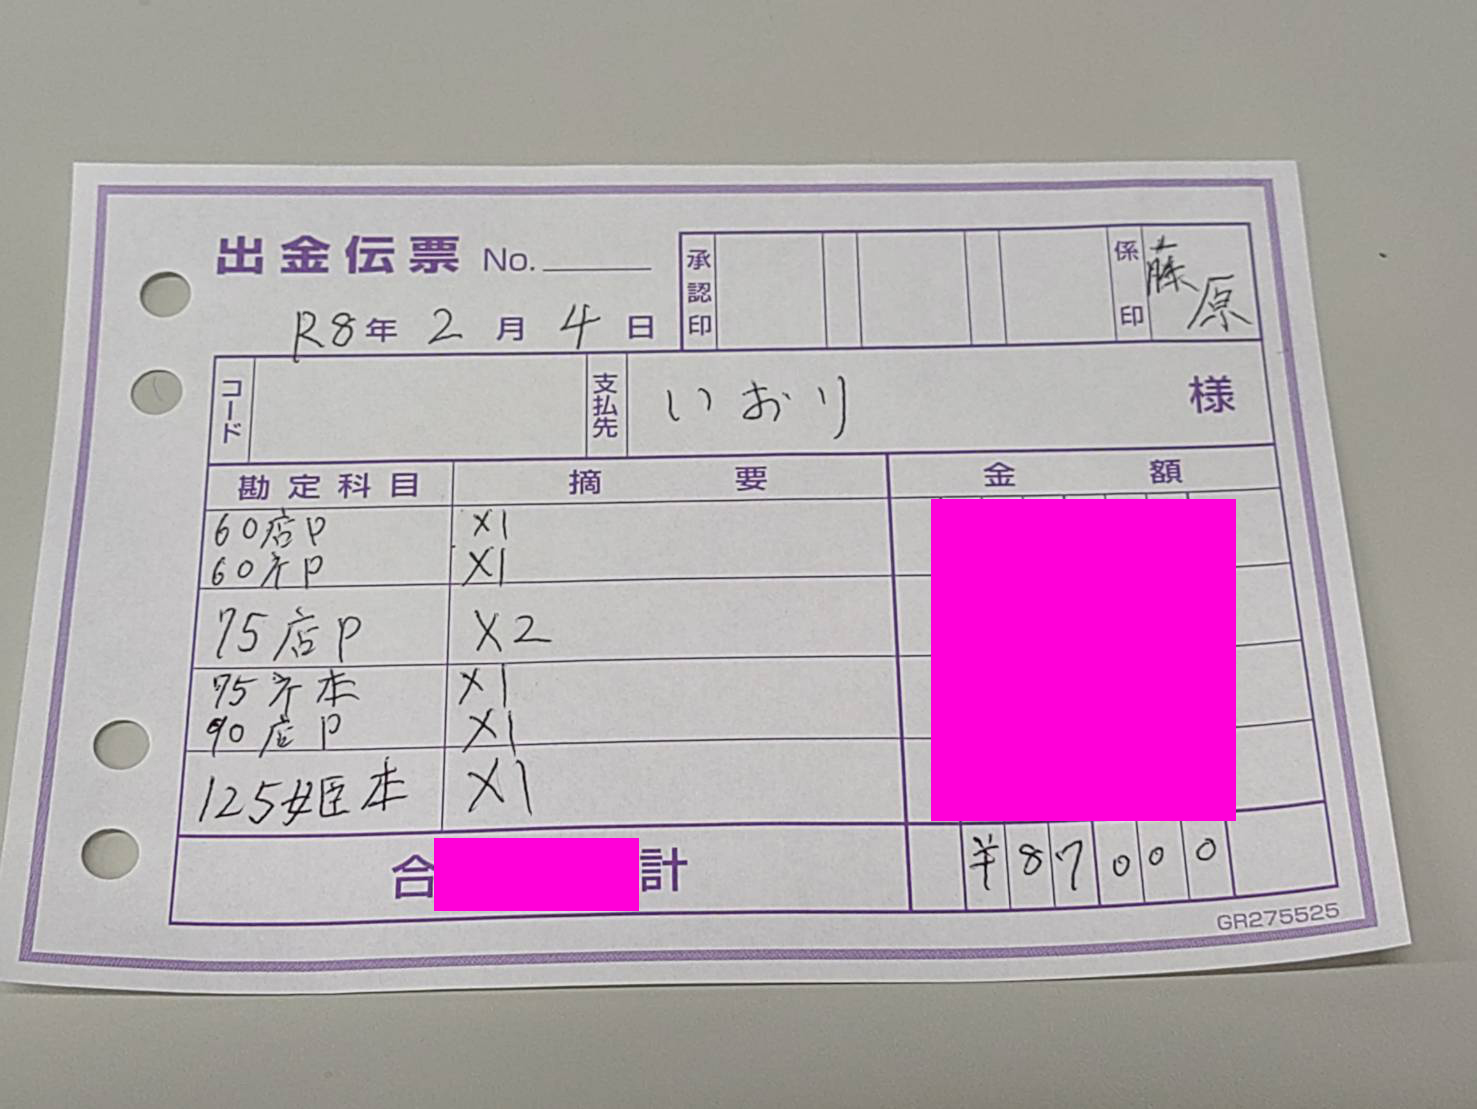 出金伝票 No.
承認印 係印 藤原
R8年 2月 4日
コード 支払先 いおり 様
勘定科目 摘要 金額
60店P ×1
60ネP ×1
75店P ×2
75ネ本 ×1
90店P ×1
125姫本 ×1
合計 ¥87000
GR275525